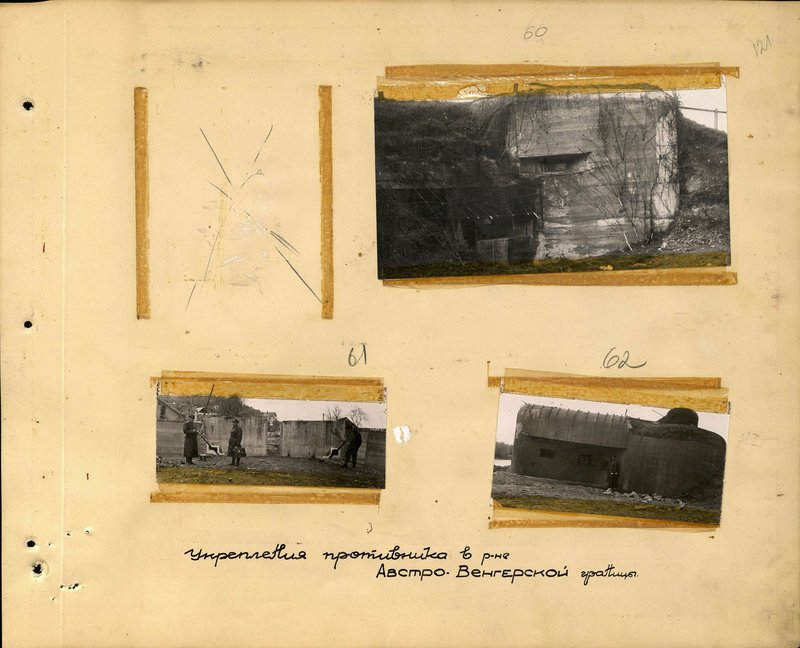 60
121
61
62
Укрепления противника в р-не
Австро-Венгерской границы.